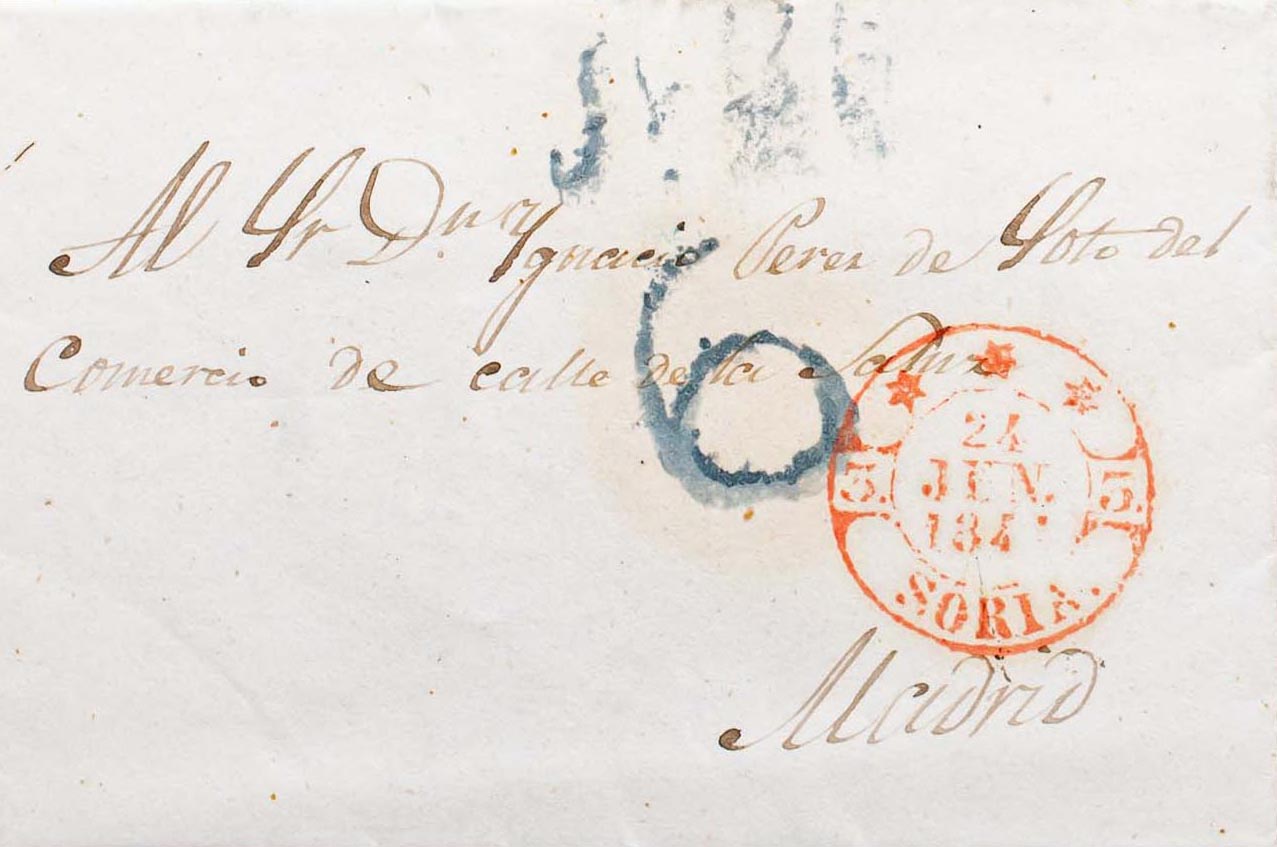 Al Sr Dn Ignacio Perez de Soto del
Comercio de calle de la Saluz
6
24
JUN.
184
5. 5.
SORIA.
Madrid